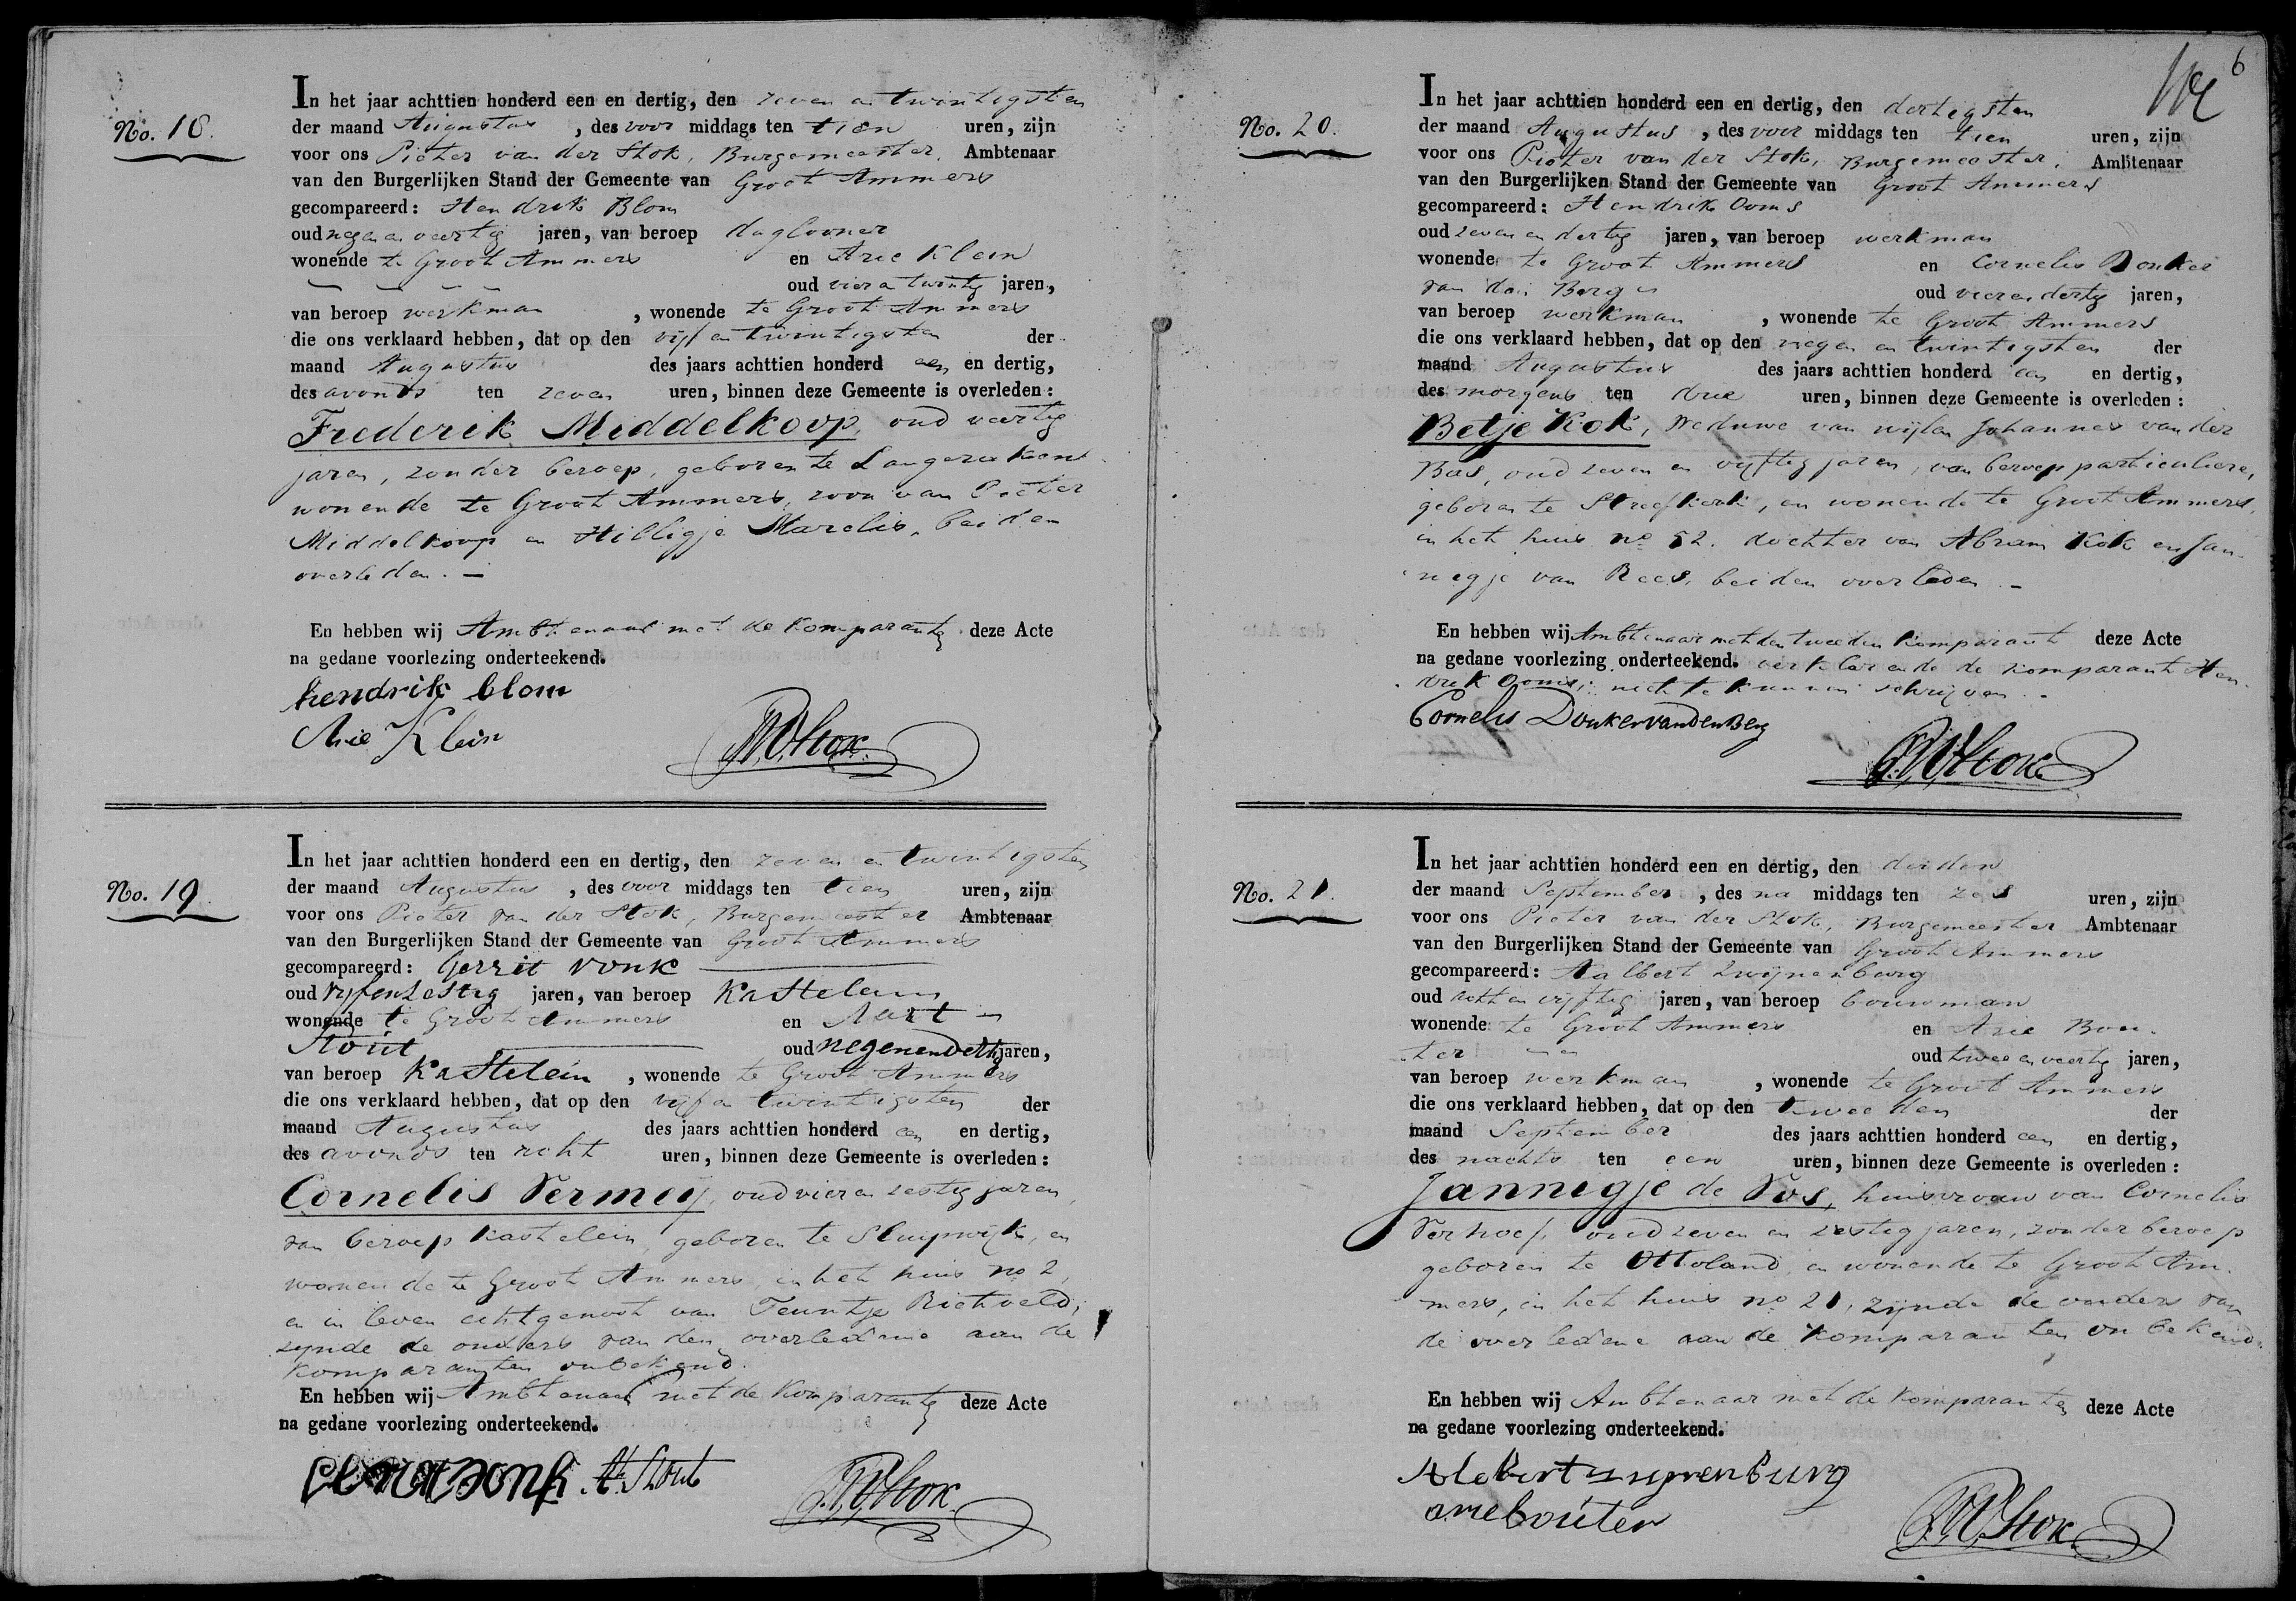 No. 18.
In het jaar achttien honderd een en dertig, den zeven en twintigsten
der maand Augustus , des voor middags ten tien uren, zijn
voor ons Pieter van der Stok, Burgemeester, Ambtenaar
van den Burgerlijken Stand der Gemeente van Groot Ammers
gecompareerd: Hendrik Blom
oud negen en veertig jaren, van beroep daglooner
wonende te Groot Ammers en Arie Klein
oud vier en twintig jaren,
van beroep werkman , wonende te Groot Ammers
die ons verklaard hebben, dat op den vijf en twintigsten der
maand Augustus des jaars achttien honderd een en dertig,
des avonds ten zeven uren, binnen deze Gemeente is overleden:
Frederik Middelkoop, oud veertig
jaren, zonder beroep, geboren te Langerak en
wonende te Groot Ammers, zoon van Pieter
Middelkoop en Hilligje Marelis, beiden
overleden. —
En hebben wij Ambtenaar met de Komparanten deze Acte
na gedane voorlezing onderteekend.
hendrik blom
Arie Klein
PVDStok
No. 19.
In het jaar achttien honderd een en dertig, den zeven en twintigsten
der maand Augustus , des voor middags ten tien uren, zijn
voor ons Pieter van der Stok, Burgemeester Ambtenaar
van den Burgerlijken Stand der Gemeente van Groot Ammers
gecompareerd: Gerrit Vonk
oud vyfenzestig jaren, van beroep Kastelein
wonende te Groot Ammers en Aart
Stout oud negenendertig jaren,
van beroep Kastelein , wonende te Groot Ammers
die ons verklaard hebben, dat op den vijf en twintigsten der
maand Augustus des jaars achttien honderd een en dertig,
des avonds ten acht uren, binnen deze Gemeente is overleden:
Cornelis Vermeij, oud vier en zestig jaren,
van beroep kastelein, geboren te Sluipwijk, en
wonende te Groot Ammers, in het huis no 2,
en in leven echtgenoot van Teuntje Rietveld,
zynde de ouders van den overledene aan de
Komparanten onbekend.
En hebben wij Ambtenaar met de Komparanten deze Acte
na gedane voorlezing onderteekend.
A. Stout
PVDStok
6
No. 20.
In het jaar achttien honderd een en dertig, den dertigsten
der maand Augustus , des voor middags ten tien uren, zijn
voor ons Pieter van der Stok, Burgemeester, Ambtenaar
van den Burgerlijken Stand der Gemeente van Groot Ammers
gecompareerd: Hendrik Ooms
oud zeven en dertig jaren, van beroep werkman
wonende te Groot Ammers en Cornelis Donker
van den Berg oud vier en dertig jaren,
van beroep werkman , wonende te Groot Ammers
die ons verklaard hebben, dat op den negen en twintigsten der
maand Augustus des jaars achttien honderd een en dertig,
des morgens ten drie uren, binnen deze Gemeente is overleden:
Betje Kok, Weduwe van wijlen Johannes van der
Bas, oud zeven en vijftig jaren, van beroep particuliere,
geboren te Streefkerk, en wonende te Groot Ammers,
in het huis no 52. dochter van Abram Kok en Jan-
negje van Rees, beiden overleden. —
En hebben wij Ambtenaar met den tweeden Komparant deze Acte
na gedane voorlezing onderteekend. verklarende de komparant Hen-
drik Ooms, niet te kunnen schrijven.
Cornelis DonkervandenBerg
PVDStok
No. 21.
In het jaar achttien honderd een en dertig, den derden
der maand September , des na middags ten zes uren, zijn
voor ons Pieter van der Stok, Burgemeester Ambtenaar
van den Burgerlijken Stand der Gemeente van Groot Ammers
gecompareerd: Aalbert Zwijnenburg
oud acht en vijftig jaren, van beroep bouwman
wonende te Groot Ammers en Arie Bou-
ter oud twee en veertig jaren,
van beroep werkman , wonende te Groot Ammers
die ons verklaard hebben, dat op den tweeden der
maand September des jaars achttien honderd een en dertig,
des nachts ten een uren, binnen deze Gemeente is overleden:
Jannigje de Vos, huisvrouw van Cornelis
Verhoef, oud zeven en zestig jaren, zonder beroep
geboren te Ottoland en wonende te Groot Am-
mers, in het huis no 21, zijnde de ouders van
de overledene aan de Komparanten onbekend.
En hebben wij Ambtenaar met de Komparanten deze Acte
na gedane voorlezing onderteekend.
ariebouter
PVDStok